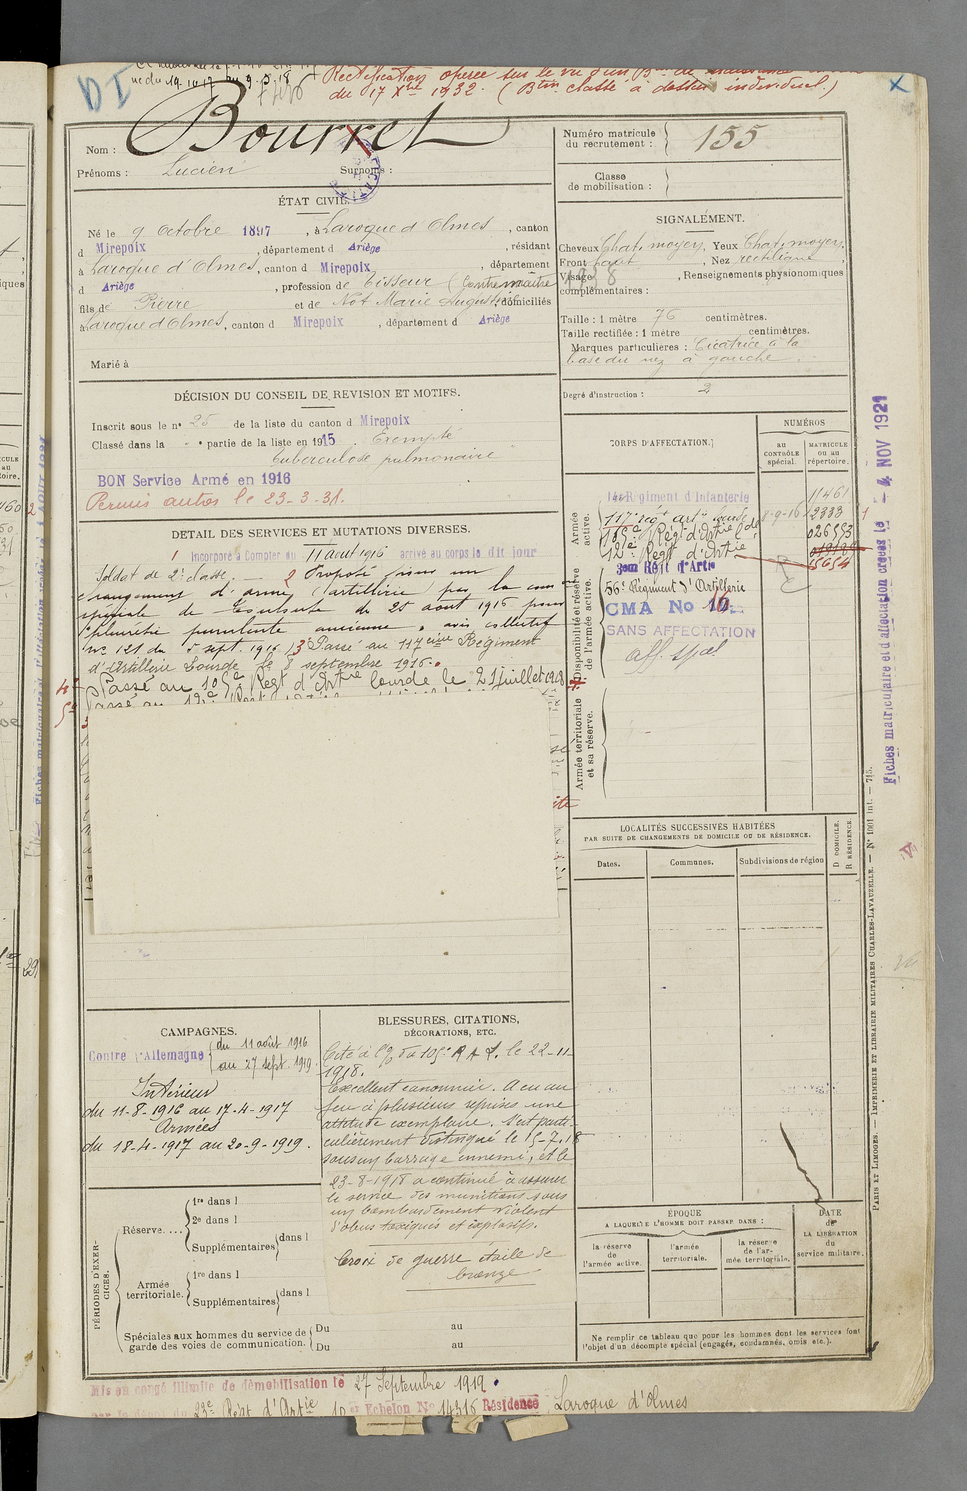 D I
ne du 19.10.17 au 9.5.18
Rectification opérée sur le vu d'un Btin de naissance
du 17 Xbre 1932. (Btin classé à dossier individuel.)
Nom : Bourret
Prénoms : Lucien Surnoms :
Numéro matricule du recrutement : 155
Classe de mobilisation :
ÉTAT CIVIL.
Né le 9 Octobre 1897, à Laroque d'Olmes, canton
d Mirepoix, département d Ariège, résidant
à Laroque d'Olmes, canton d Mirepoix, département
d Ariège, profession de tisseur (Contremaître
fils de Pierre et de Not Marie Augustine domiciliés
à Laroque d'Olmes, canton d Mirepoix, département d Ariège
Marié à
SIGNALEMENT.
Cheveux Chat. moyen, Yeux Chat. moyen,
Front haut, Nez rectiligne,
Visage , Renseignements physionomiques
complémentaires :
1938
Taille : 1 mètre 76 centimètres.
Taille rectifiée : 1 mètre centimètres.
Marques particulières : Cicatrice à la
base du nez à gauche.
Degré d'instruction : 2
DÉCISION DU CONSEIL DE REVISION ET MOTIFS.
Inscrit sous le n° 25 de la liste du canton d Mirepoix
Classé dans la - e partie de la liste en 1915. Exempté
tuberculose pulmonaire
BON Service Armé en 1916
Permis autos le 23-3-31.
DÉTAIL DES SERVICES ET MUTATIONS DIVERSES.
1 Incorporé à Compter du 11 août 1916 arrivé au corps le dit jour
Soldat de 2e classe. — 2 Proposé pour un
changement d'arme (artillerie) par la com
spéciale de Toulouse du 25 août 1916 pour
pleurésie purulente ancienne, avis collectif
n° 121 du 5 sept. 1916 3 Passé au 117ème Régiment
d'Artillerie Lourde le 8 septembre 1916.
4° Passé au 105e Régt d'Artie lourde le 21 juillet 1918
5°
CORPS D'AFFECTATION.
NUMÉROS
AU CONTRÔLE spécial.
MATRICULE OU AU répertoire.
Armée active.
14e Régiment d'Infanterie 11461
117e régt arte lourde 8-9-16 12333
105e Régt d'Artie Lde 026593
121e Régt d'Artie
15654
Disponibilité et réserve de l'armée active.
3em Régt d'Artie
56e Régiment d'Artillerie
CMA No 16
SANS AFFECTATION
aff. spal
Armée territoriale et sa réserve.
Fiches matriculaire et d'affectation créées le - 4 NOV 1921
LOCALITÉS SUCCESSIVES HABITÉES
PAR SUITE DE CHANGEMENTS DE DOMICILE OU DE RÉSIDENCE.
Dates.
Communes.
Subdivisions de région
D DOMICILE.
R RÉSIDENCE.
PARIS ET LIMOGES. — IMPRIMERIE ET LIBRAIRIE MILITAIRES CHARLES-LAVAUZELLE. — N° 1001 int. — 715.
CAMPAGNES.
Contre l'Allemagne du 11 août 1916
au 27 sept. 1919.
Intérieur
du 11-8-1916 au 17-4-1917
Armées
du 18-4-1917 au 20-9-1919.
BLESSURES, CITATIONS,
DÉCORATIONS, ETC.
Cité à l'O du 105e R A L. le 22-11-
1918.
Excellent canonnier. A eu au
feu à plusieurs reprises une
attitude exemplaire. S'est parti-
culièrement distingué le 15-7-18
sous un barrage ennemi, et le
23-8-1918 a continué à assurer
le service des munitions sous
un bombardement violent
d'obus toxiques et explosifs.
Croix de guerre étoile de
bronze
PÉRIODES D'EXERCICES.
Réserve....
1re dans l
2e dans l
Supplémentaires dans l
Armée territoriale.
1re dans l
Supplémentaires dans l
Spéciales aux hommes du service de
garde des voies de communication.
Du au
Du au
ÉPOQUE
A LAQUELLE L'HOMME DOIT PASSER DANS :
la réserve de l'armée active.
l'armée territoriale.
la réserve de l'armée territoriale.
DATE de LA LIBÉRATION du service militaire.
Ne remplir ce tableau que pour les hommes dont les services font
l'objet d'un décompte spécial (engagés, condamnés, omis etc.).
Mis en congé illimité de démobilisation le 27 Septembre 1919.
par le dépôt du 23e Régt d'Artie 10e Echelon No 14316 Résidence Laroque d'Olmes